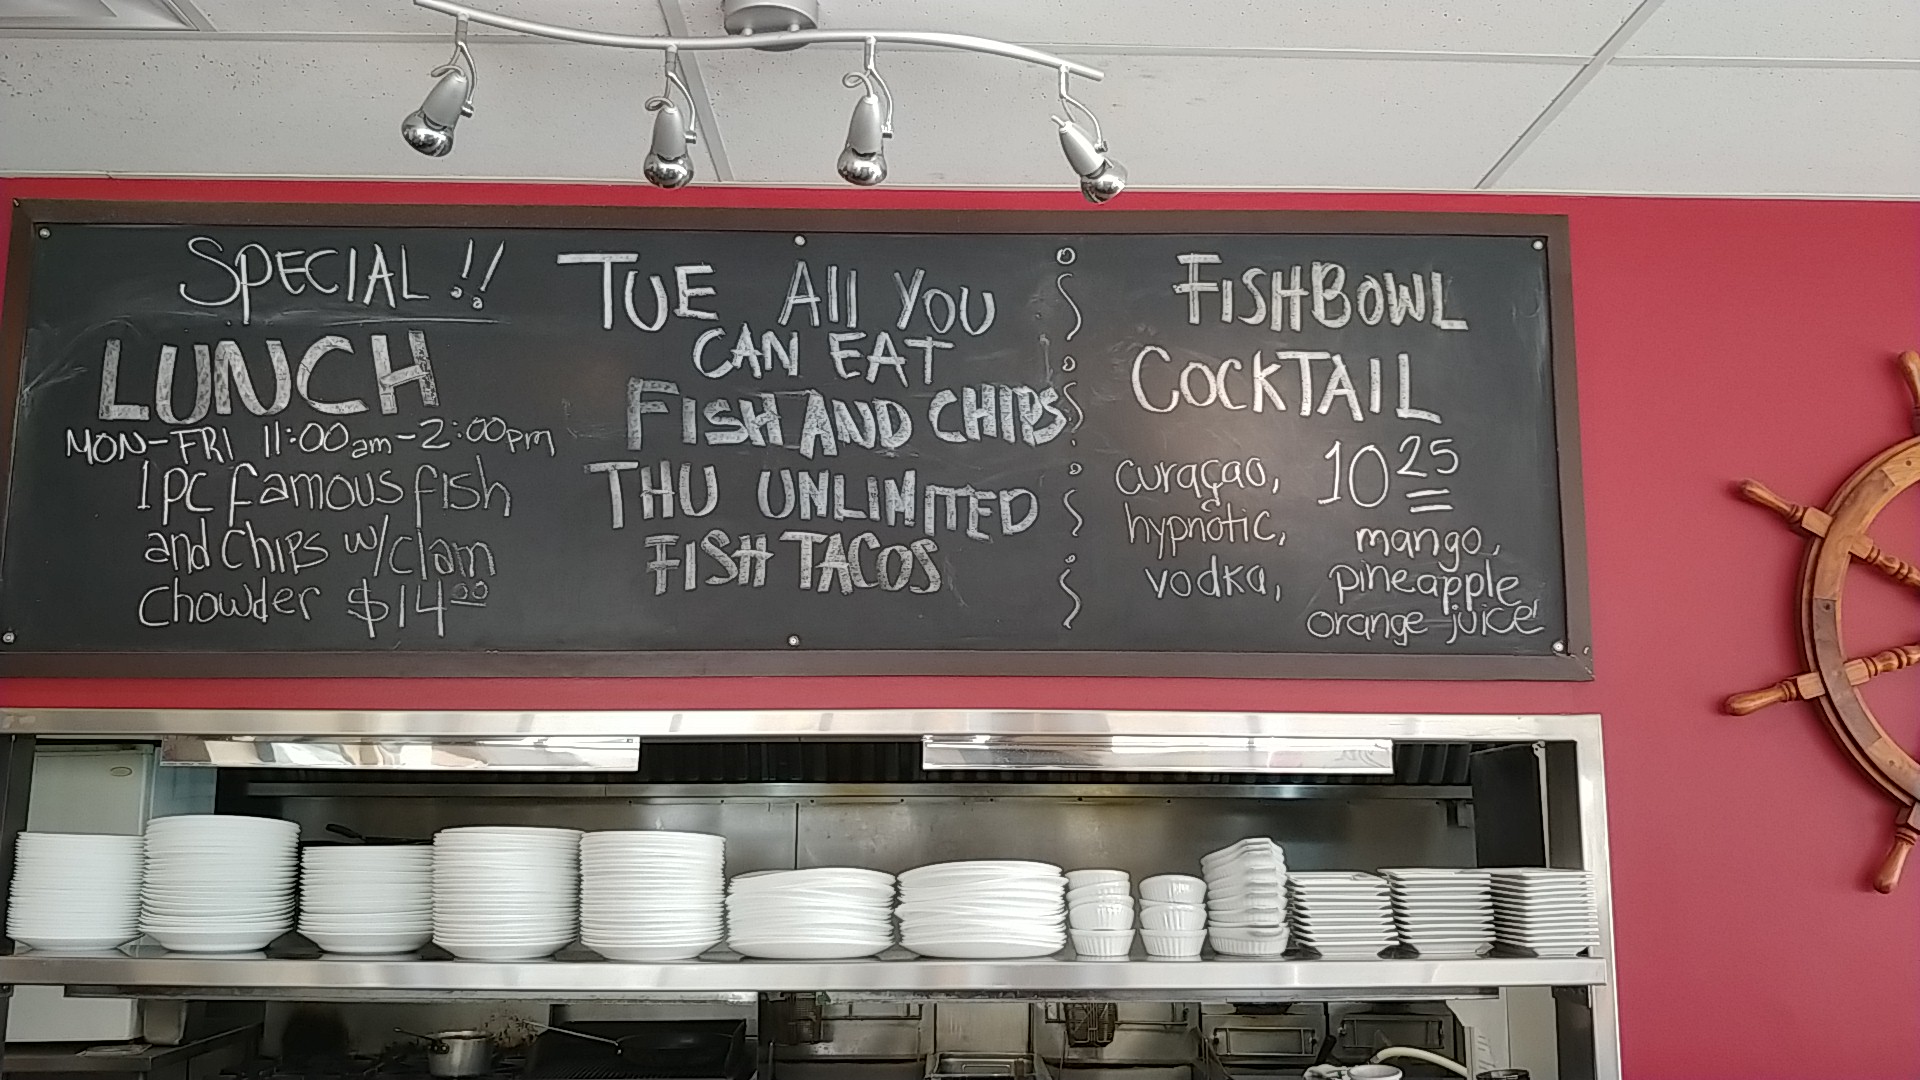 SPECIAL!!
LUNCH
MON-FRI 11:00am-2:00pm
1pc famous fish
and chips w/clam
chowder $14.00
TUE All YOU
CAN EAT
FISH AND CHIPS
THU UNLIMITED
FISH TACOS
FISHBOWL
COCKTAIL
10 25
curaçao,
hypnotic,
vodka,
mango,
pineapple
orange juice